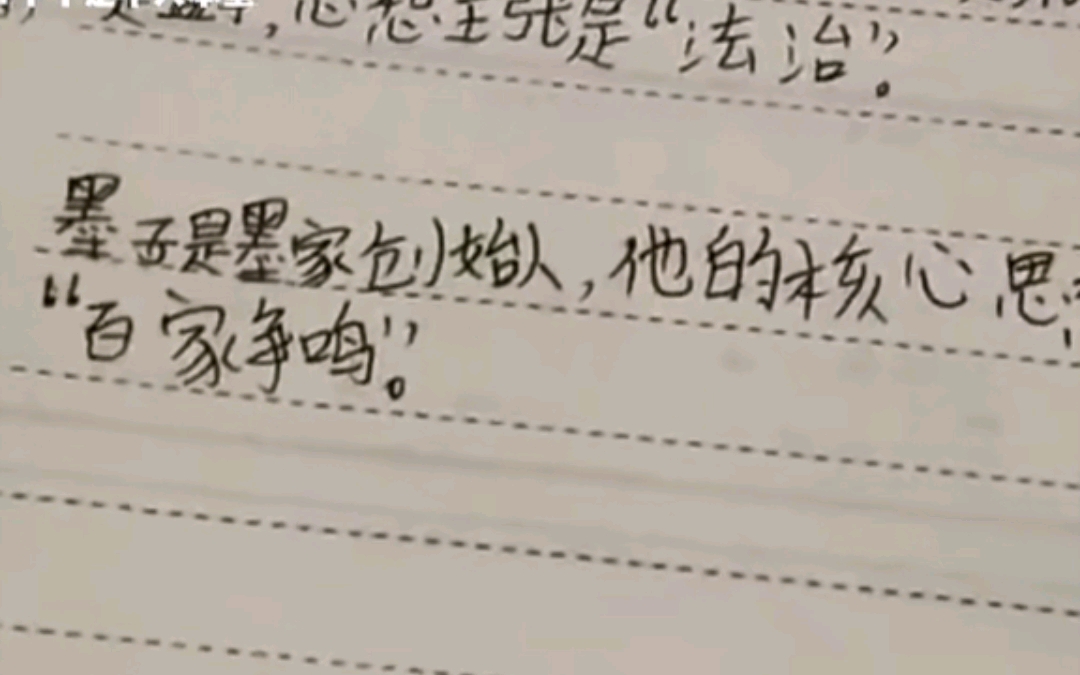 思想主张是“法治”。
墨子是墨家创始人,他的核心思
“百家争鸣”。